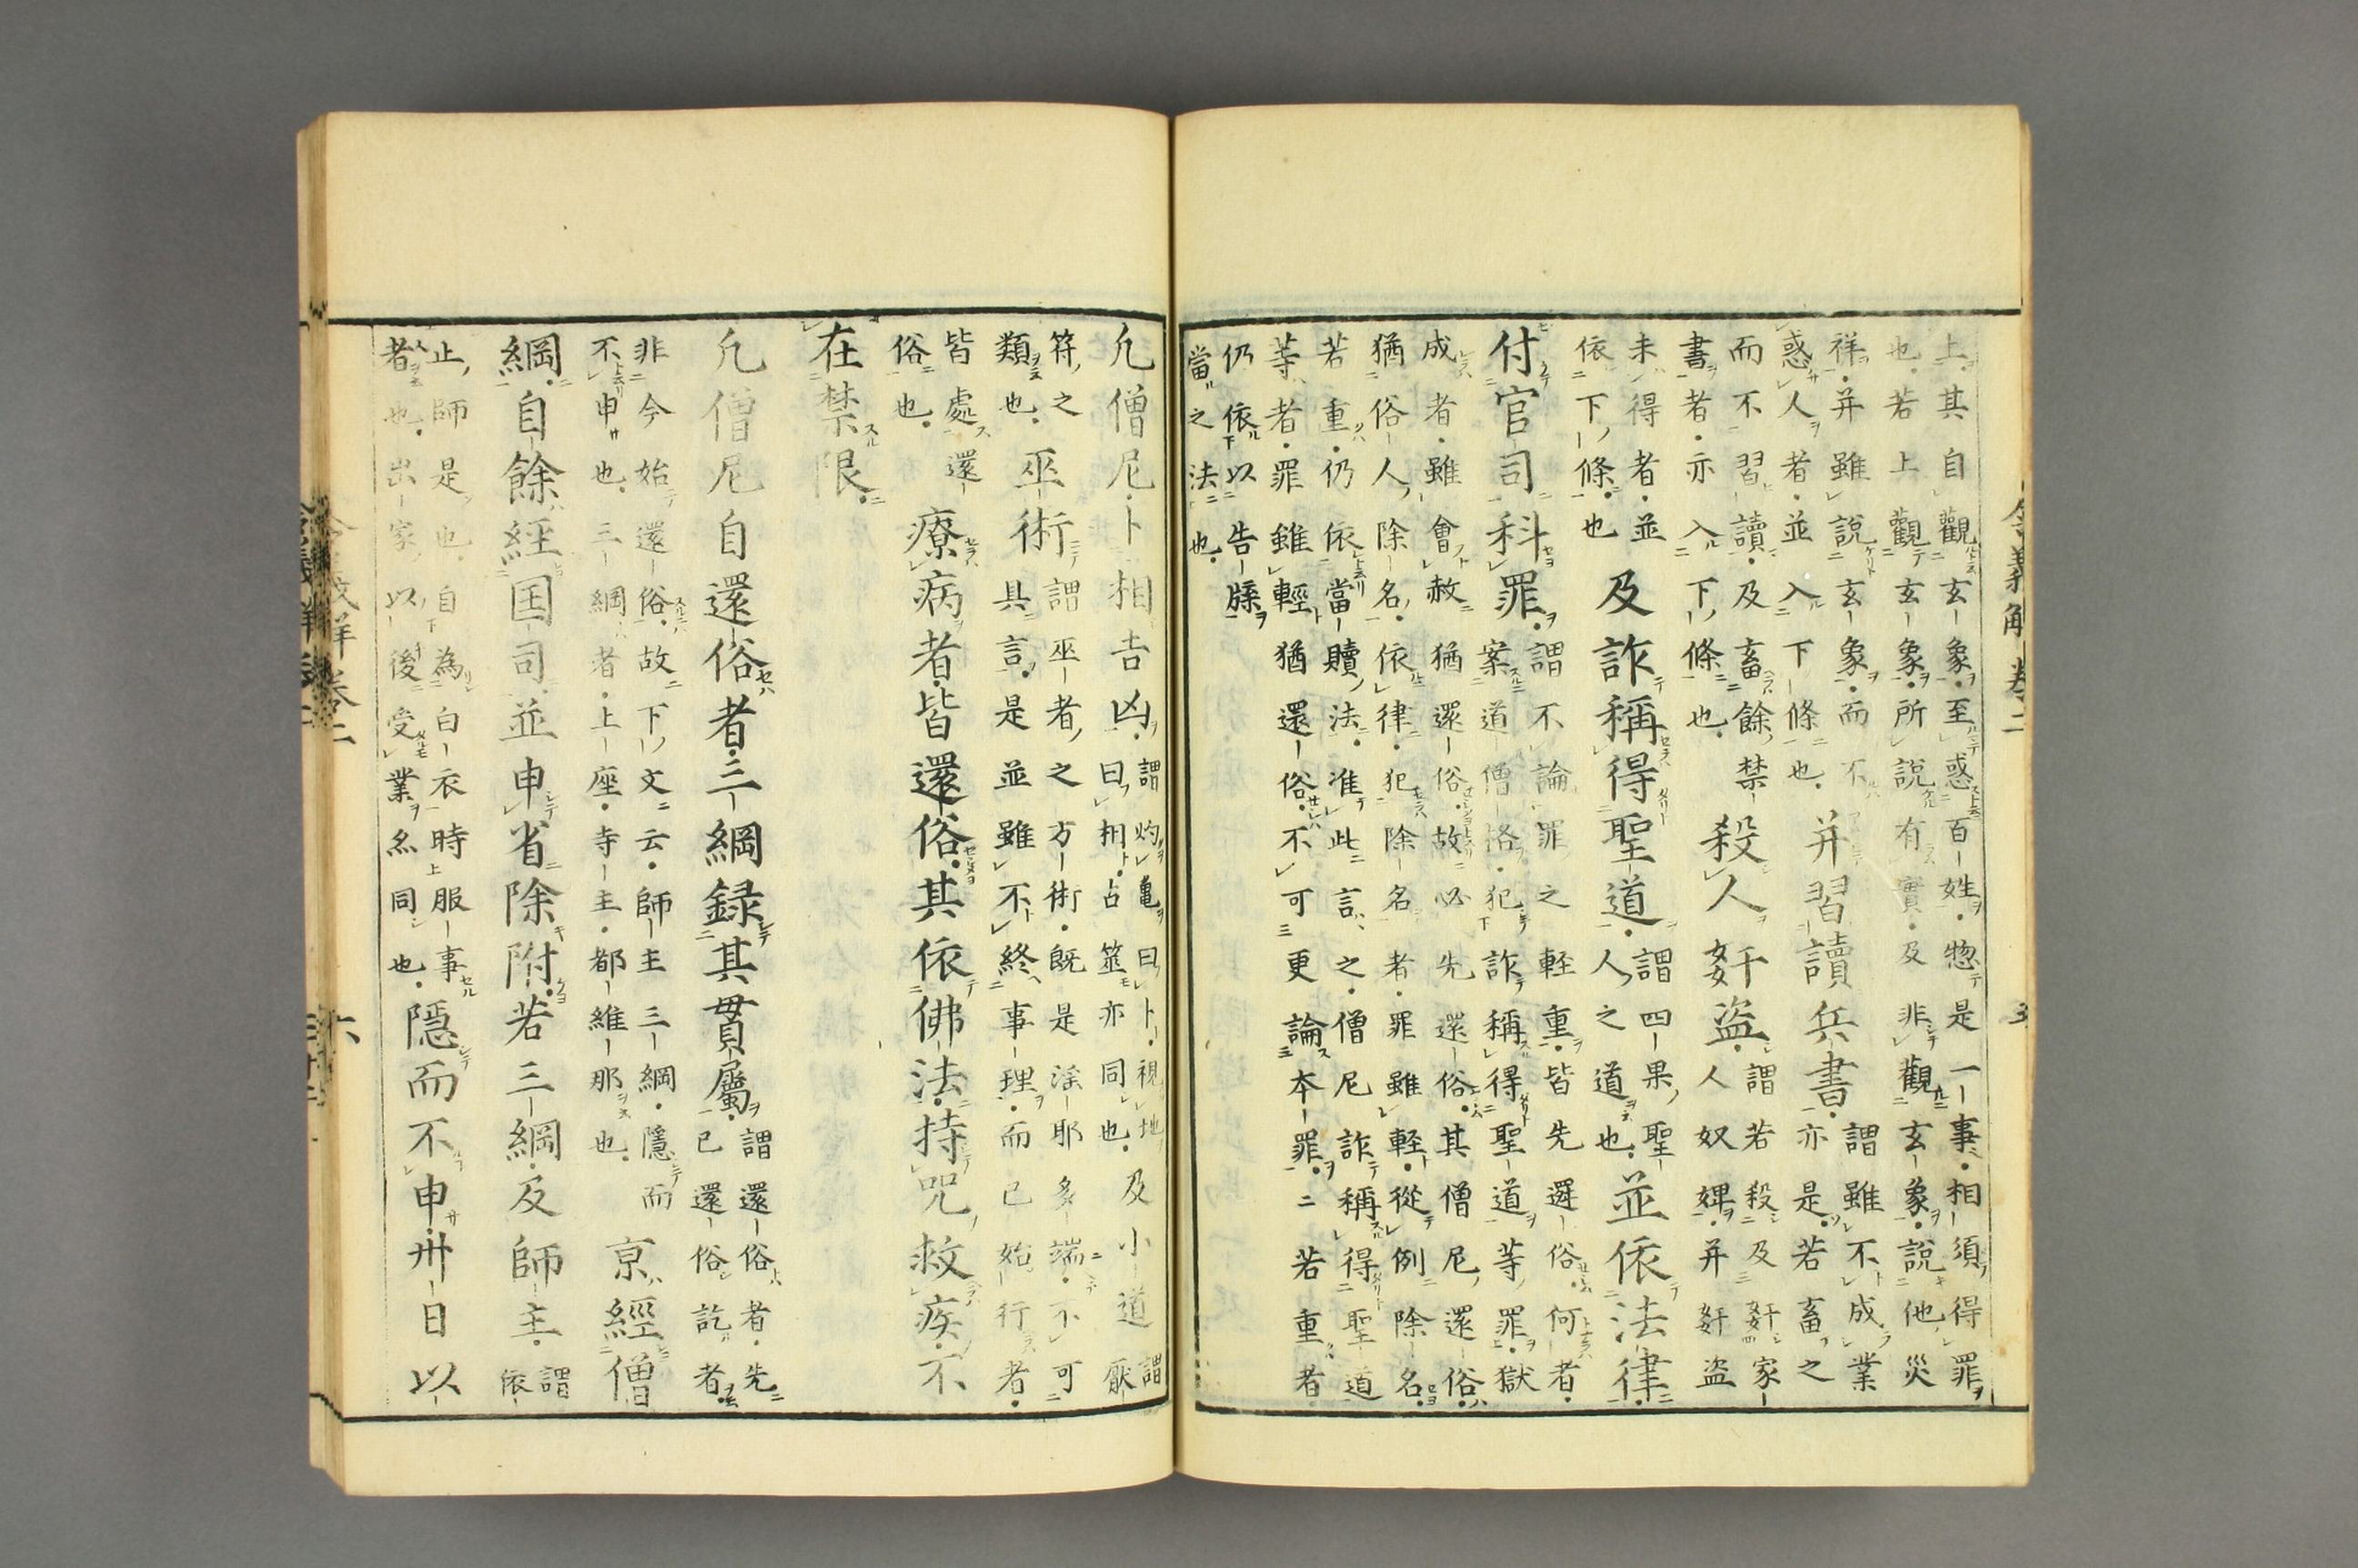 上其自觀玄象至惑百姓惣是一事相須得罪
也若上觀玄象所說有實及非觀玄象說他災
祥并雖說玄象而不
惑人者並入下條也
并習讀兵書
謂雖不成業
亦是若畜之
而不習讀及畜餘禁
書者亦入下條也
殺人奸盜
謂若殺及奸家
人奴婢并奸盜
未得者並
依下條也
及詐稱得聖道
謂四果聖
人之道也
並依法律
付官司科罪
謂不論罪之軽重皆先還俗何者
案道僧格犯詐稱得聖道等罪獄
成者雖會赦猶還俗故必先還俗其僧尼還俗
猶俗人除名依律犯除名者罪雖軽從例除名
若重仍依當贖法准此言之僧尼詐稱得聖道
等者罪雖輕猶還俗不可更論本罪二若重者
仍依以告牒
當之法也
凢僧尼卜相吉凶
謂灼亀曰卜視地
曰相占筮亦同也
及小道
謂厭
符之
類也
巫術
謂巫者之方術既是滛耶多端不可
具言是並雖不終事理而已始行者
皆處還
俗也
療病者皆還俗其依佛法持咒救疾不
在禁限
凢僧尼自還俗者三綱録其貫屬
謂還俗者先
已還俗訖者
非今始還俗故下文云師主三綱隱而
不申也三綱者上座寺主都維那也
京經僧
綱自餘経国司並申省除附若三綱及師主
謂
依
止師是也自為白衣時服事
者也出家以後受業亦同也
隱而不申卅日以
令義解 卷二
五
六